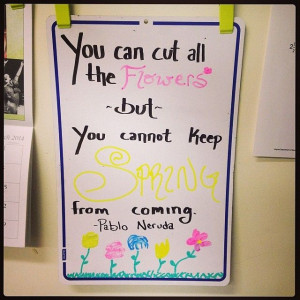 You can cut all
the Flowers
~but~
you cannot keep
SPRING
from coming.
-Pablo Neruda